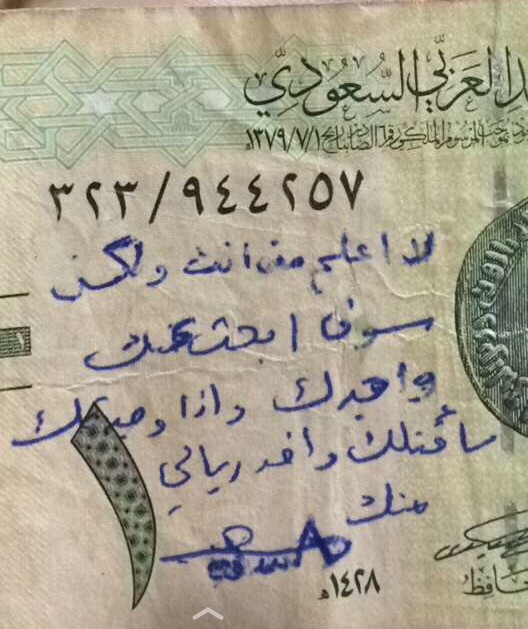 العربي السعودي
١٣٧٩/٧/١هـ
٣٢٣/٩٤٤٢٥٧
لا اعلم من انت ولكن
سوف ابحث عنك
واجدك واذا وجدتك
سأقتلك واخذ ريالي
منك
١
١٤٢٨هـ